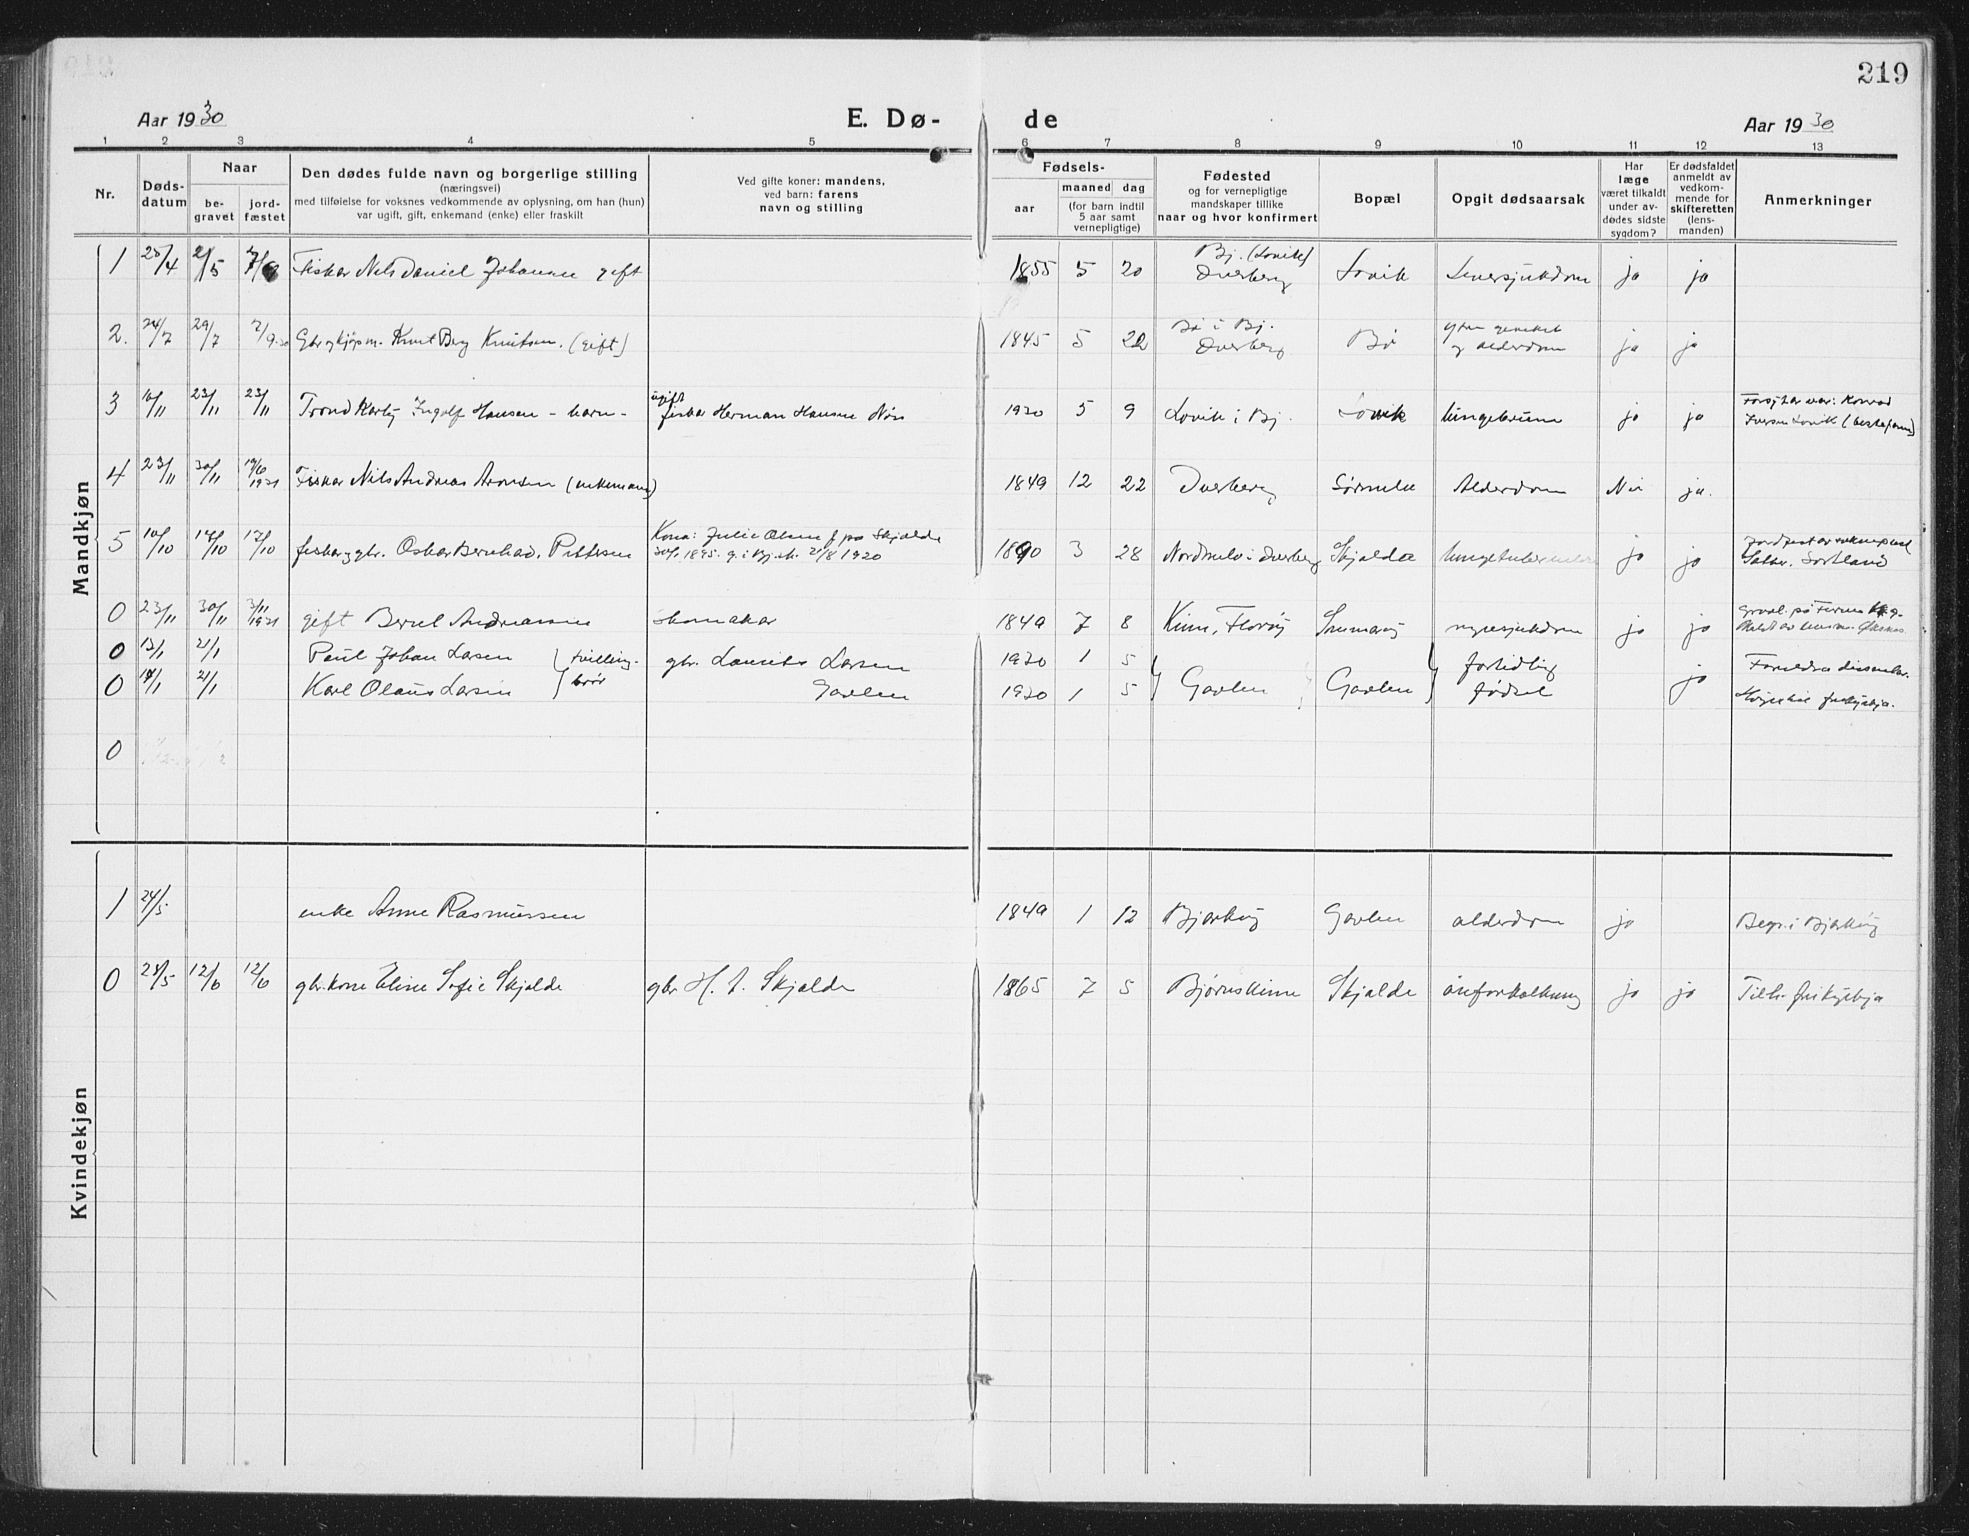 219
Aar 1930 E. Dø- de Aar 1930
1 2 3 4 5 6 7 8 9 10 11 12 13
Nr.
Døds-
datum
Naar
be-
gravet
jord-
fæstet
Den dødes fulde navn og borgerlige stilling
(næringsvei)
med tilføielse for voksnes vedkommende av oplysning, om han (hun)
var ugift, gift, enkemand (enke) eller fraskilt
Ved gifte koner: mandens,
ved barn: farens
navn og stilling
Fødsels-
aar
maaned dag
(for barn indtil
5 aar samt
vernepligtige)
Fødested
og for vernepligtige
mandskaper tillike
naar og hvor konfirmert
Bopæl
Opgit dødsaarsak
Har
læge
været tilkaldt
under av-
dødes sidste
sygdom?
Er dødsfaldet
anmeldt av
vedkom-
mende for
skifteretten
(lens-
manden)
Anmerkninger
Mandkjøn
1 25/4 2/5 Fisker Nils Daniel Johansen gift 1855 5 20 Bj. (Lovik) Dverberg Lovik Leversjukdom ja ja
2. 24/7 29/7 7/9-30 Gbr og kjøpm. Knut Berg Knutsen. (gift) 1845 5 22 Bø i Bj. Dverberg Bø og alderdom ja ja
3 16/11 23/11 23/11 Trond Karby Ingolf Hansen - barn - ugift fisker Herman Hansen Nøss 1930 5 9 Lovik i Bj. Lovik lungebrune ja ja Forsytar var: Konrad
Iversen Lovik (bestefaren)
4 23/11 30/11 19/6 1931 Fisker Nils Andreas Aronsen (enkemann) 1849 12 22 Dverberg Sørmela Alderdom Nei ja.
5 10/10 17/10 17/10 fisker og gbr. Oskar Bernhard Pettersen Kona: Julie Olsen f. på Skjolde
1895. g. i Bj. k. 21/8 1920 1890 3 28 Nordmela i Dverberg Skjolde lungetuberkulose ja ja
Sortland
0 23/11 30/11 3/11 1931 gift Bernt Andreassen skomakar 1849 7 8 Kinn, Florøy nyresjukdom ja ja
0 13/1 21/1 Paul Johan Larsen } tvilling- gbr. Laurits Larsen 1930 1 5 fortidlig Foreldra dissenter.
0 14/1 21/1 Karl Olaus Larsen } brør Gavlen 1930 1 5 } Gavlen } Gavlen } fødsel ja frikyrkja.
0
Kvindekjøn
1 24/5 enke Anne Rasmussen 1849 1 12 Bjarkøy Gavlen alderdom ja Begr. i Bjarkøy
0 28/5 12/6 12/6 gbr.kone Eline Sofie Skjolde gbr H. J. Skjolde 1865 7 5 Bjørnskinn Skjolde åreforkalkning ja ja Tilh. frikyrkja